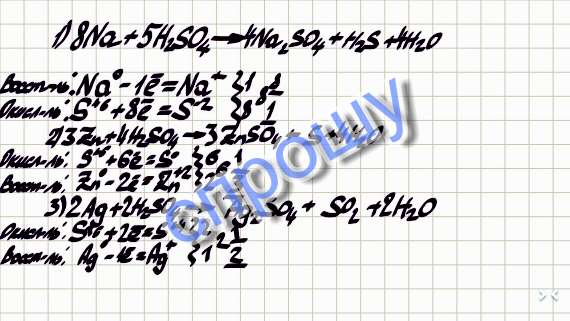 1) 8Na + 5H₂SO₄ → 4Na₂SO₄ + H₂S + 4H₂O
Восст-ль: Na⁰ - 1ē = Na⁺ } 1 8
Окисл-ль: S⁺⁶ + 8ē = S⁻² } 8 1
2) 3Zn + 4H₂SO₄ → 3ZnSO₄ + S + 4H₂O
Окисл-ль: S⁺⁶ + 6ē = S⁰ } 6 1
Восст-ль: Zn⁰ - 2ē = Zn⁺² }
3) 2Ag + 2H₂SO₄ → Ag₂SO₄ + SO₂ + 2H₂O
Окисл-ль: S⁺⁶ + 2ē = S⁺⁴ } 2 1
Восст-ль: Ag - 1ē = Ag⁺ } 1 2
спрошу